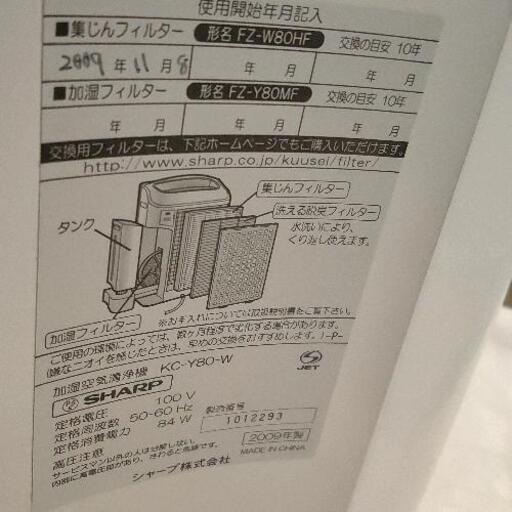 使用開始年月記入
■集じんフィルター 形名 FZ-W80HF 交換の目安 10年
2009 年 11 月 8 年 月 年 月
■加湿フィルター 形名 FZ-Y80MF 交換の目安 10年
年 月 年 月 年 月
交換用フィルターは、下記ホームページでもご購入いただけます。
http://www.sharp.co.jp/kuusei/filter/
集じんフィルター
洗える脱臭フィルター
水洗いにより、
くり返し使えます。
タンク
加湿フィルター
※お手入れについては取扱説明書をご覧下さい。
ご使用の環境によっては、数ヶ月程度で劣化する場合があります。
(嫌なニオイを感じたときは、早めの交換をおすすめします。)-P-
加湿空気清浄機 KC-Y80-W
SHARP
JET
定格電圧 100 V
定格周波数 50-60 Hz
定格消費電力 84 W
製造番号
1012293
高圧注意
サービスマン以外の人は分解しないで下さい。
内部に高電圧部があり、さわると危険です。
2009年製
MADE IN CHINA
シャープ株式会社